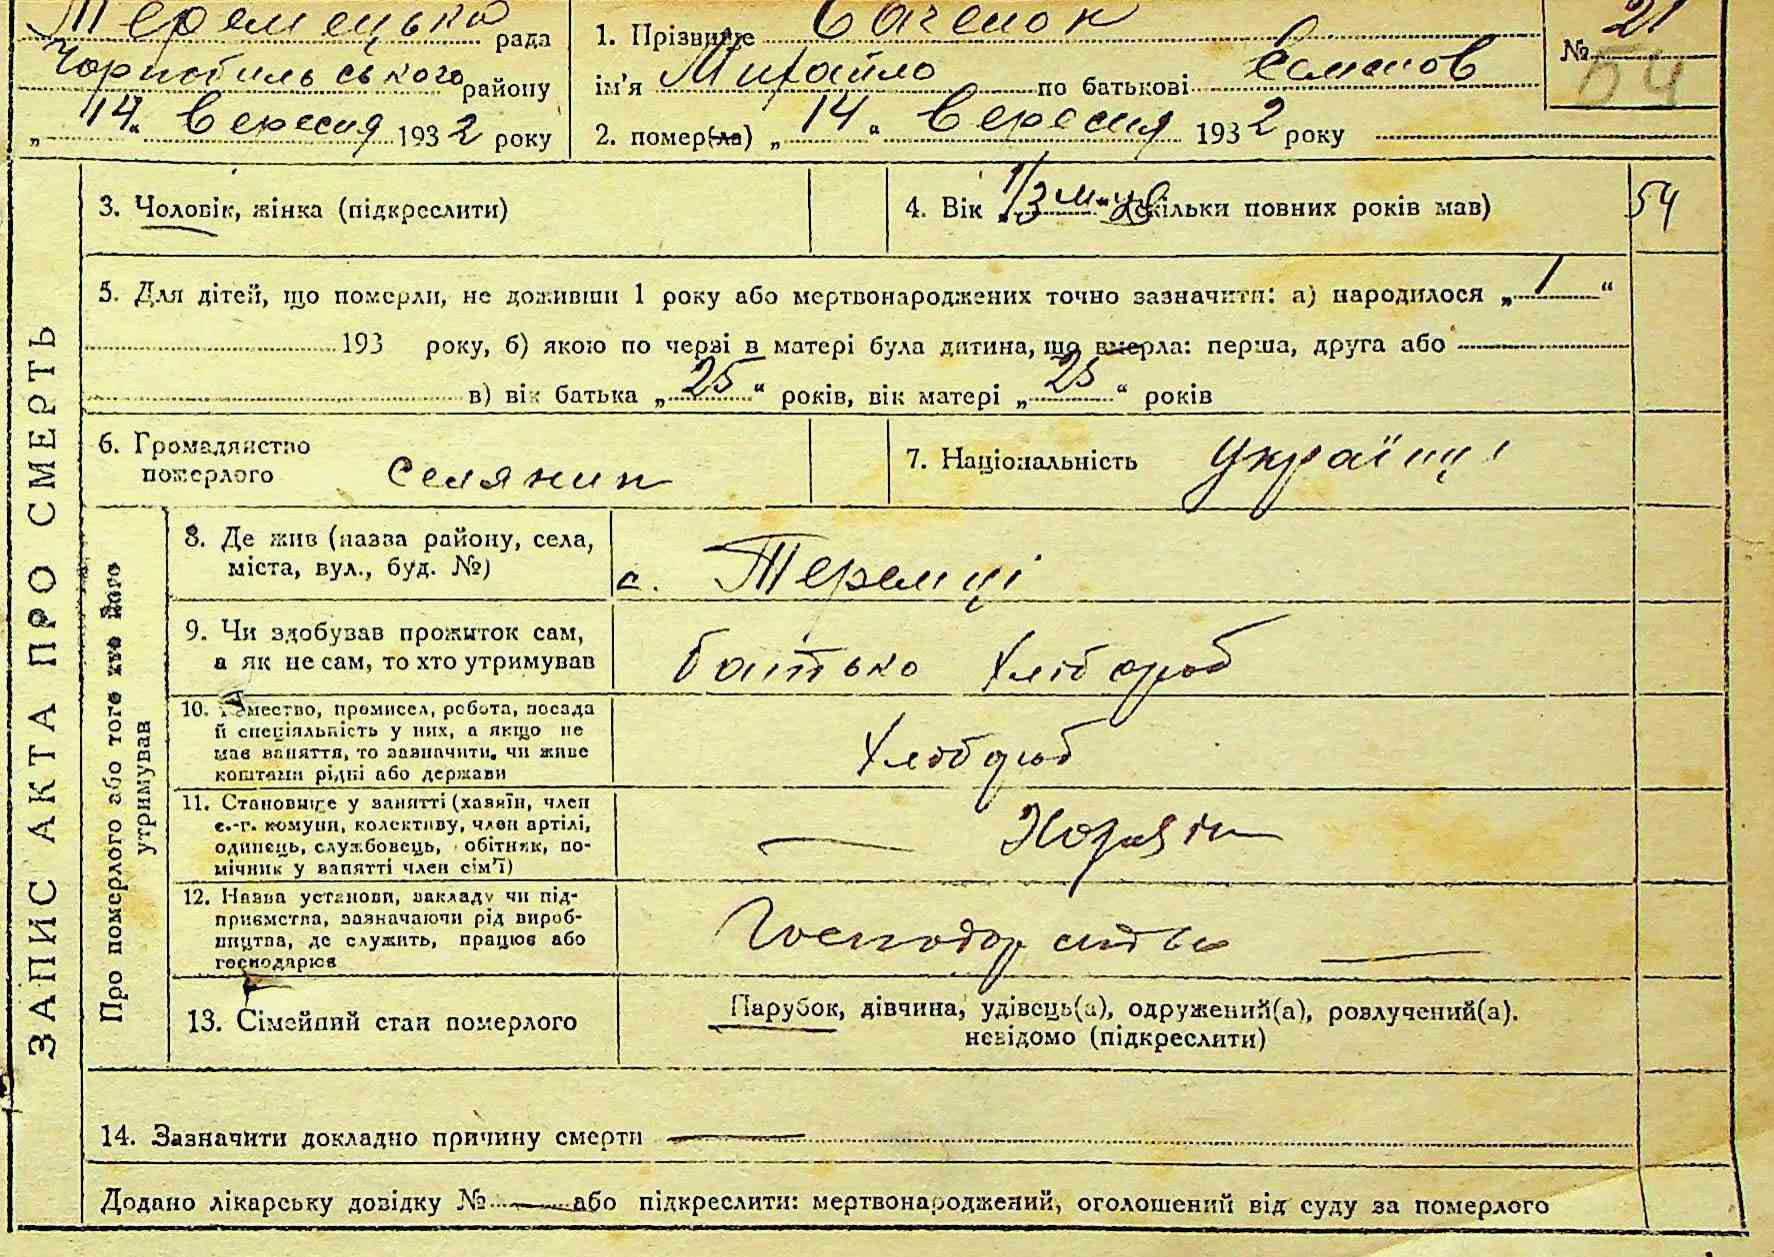 Теремецька рада
Чорнобильського району
„14" вересня 1932 року
1. Прізвище
ім'я Михайло по батькові
2. помер(ла) „14" вересня 1932 року
№ 21
54
3. Чоловік, жінка (підкреслити)
4. Вік „1/3 м-ця" (скільки повних років мав)
54
5. Для дітей, що померли, не доживши 1 року або мертвонароджених точно зазначити: а) народилося „1"
193 року, б) якою по черзі в матері була дитина, що вмерла: перша, друга або
в) вік батька „25" років, вік матері „25" років
6. Громадянство
померлого селянин
7. Національність україн
ЗАПИС АКТА ПРО СМЕРТЬ
Про померлого або того хто його
утримував
8. Де жив (назва району, села,
міста, вул., буд. №)
с. Теремці
9. Чи здобував прожиток сам,
а як не сам, то хто утримував
батько хлібороб
10. Ремество, промисел, робота, посада
й спеціяльність у них, а якщо не
мав заняття, то зазначити, чи живе
коштами рідні або держави
хлібороб
11. Становище у занятті (хазяїн, член
с.-г. комуни, колективу, член артілі,
одинець, службовець, обітник, по-
мічник у занятті член сім'ї)
— Хазяїн
12. Назва установи, закладу чи під-
приємства, зазначаючи рід вироб-
ництва, де служить, працює або
господарює
Господарство —
13. Сімейний стан померлого
Парубок, дівчина, удівець(а), одружений(а), розлучений(а).
невідомо (підкреслити)
14. Зазначити докладно причину смерти —
Додано лікарську довідку № — або підкреслити: мертвонароджений, оголошений від суду за померлого